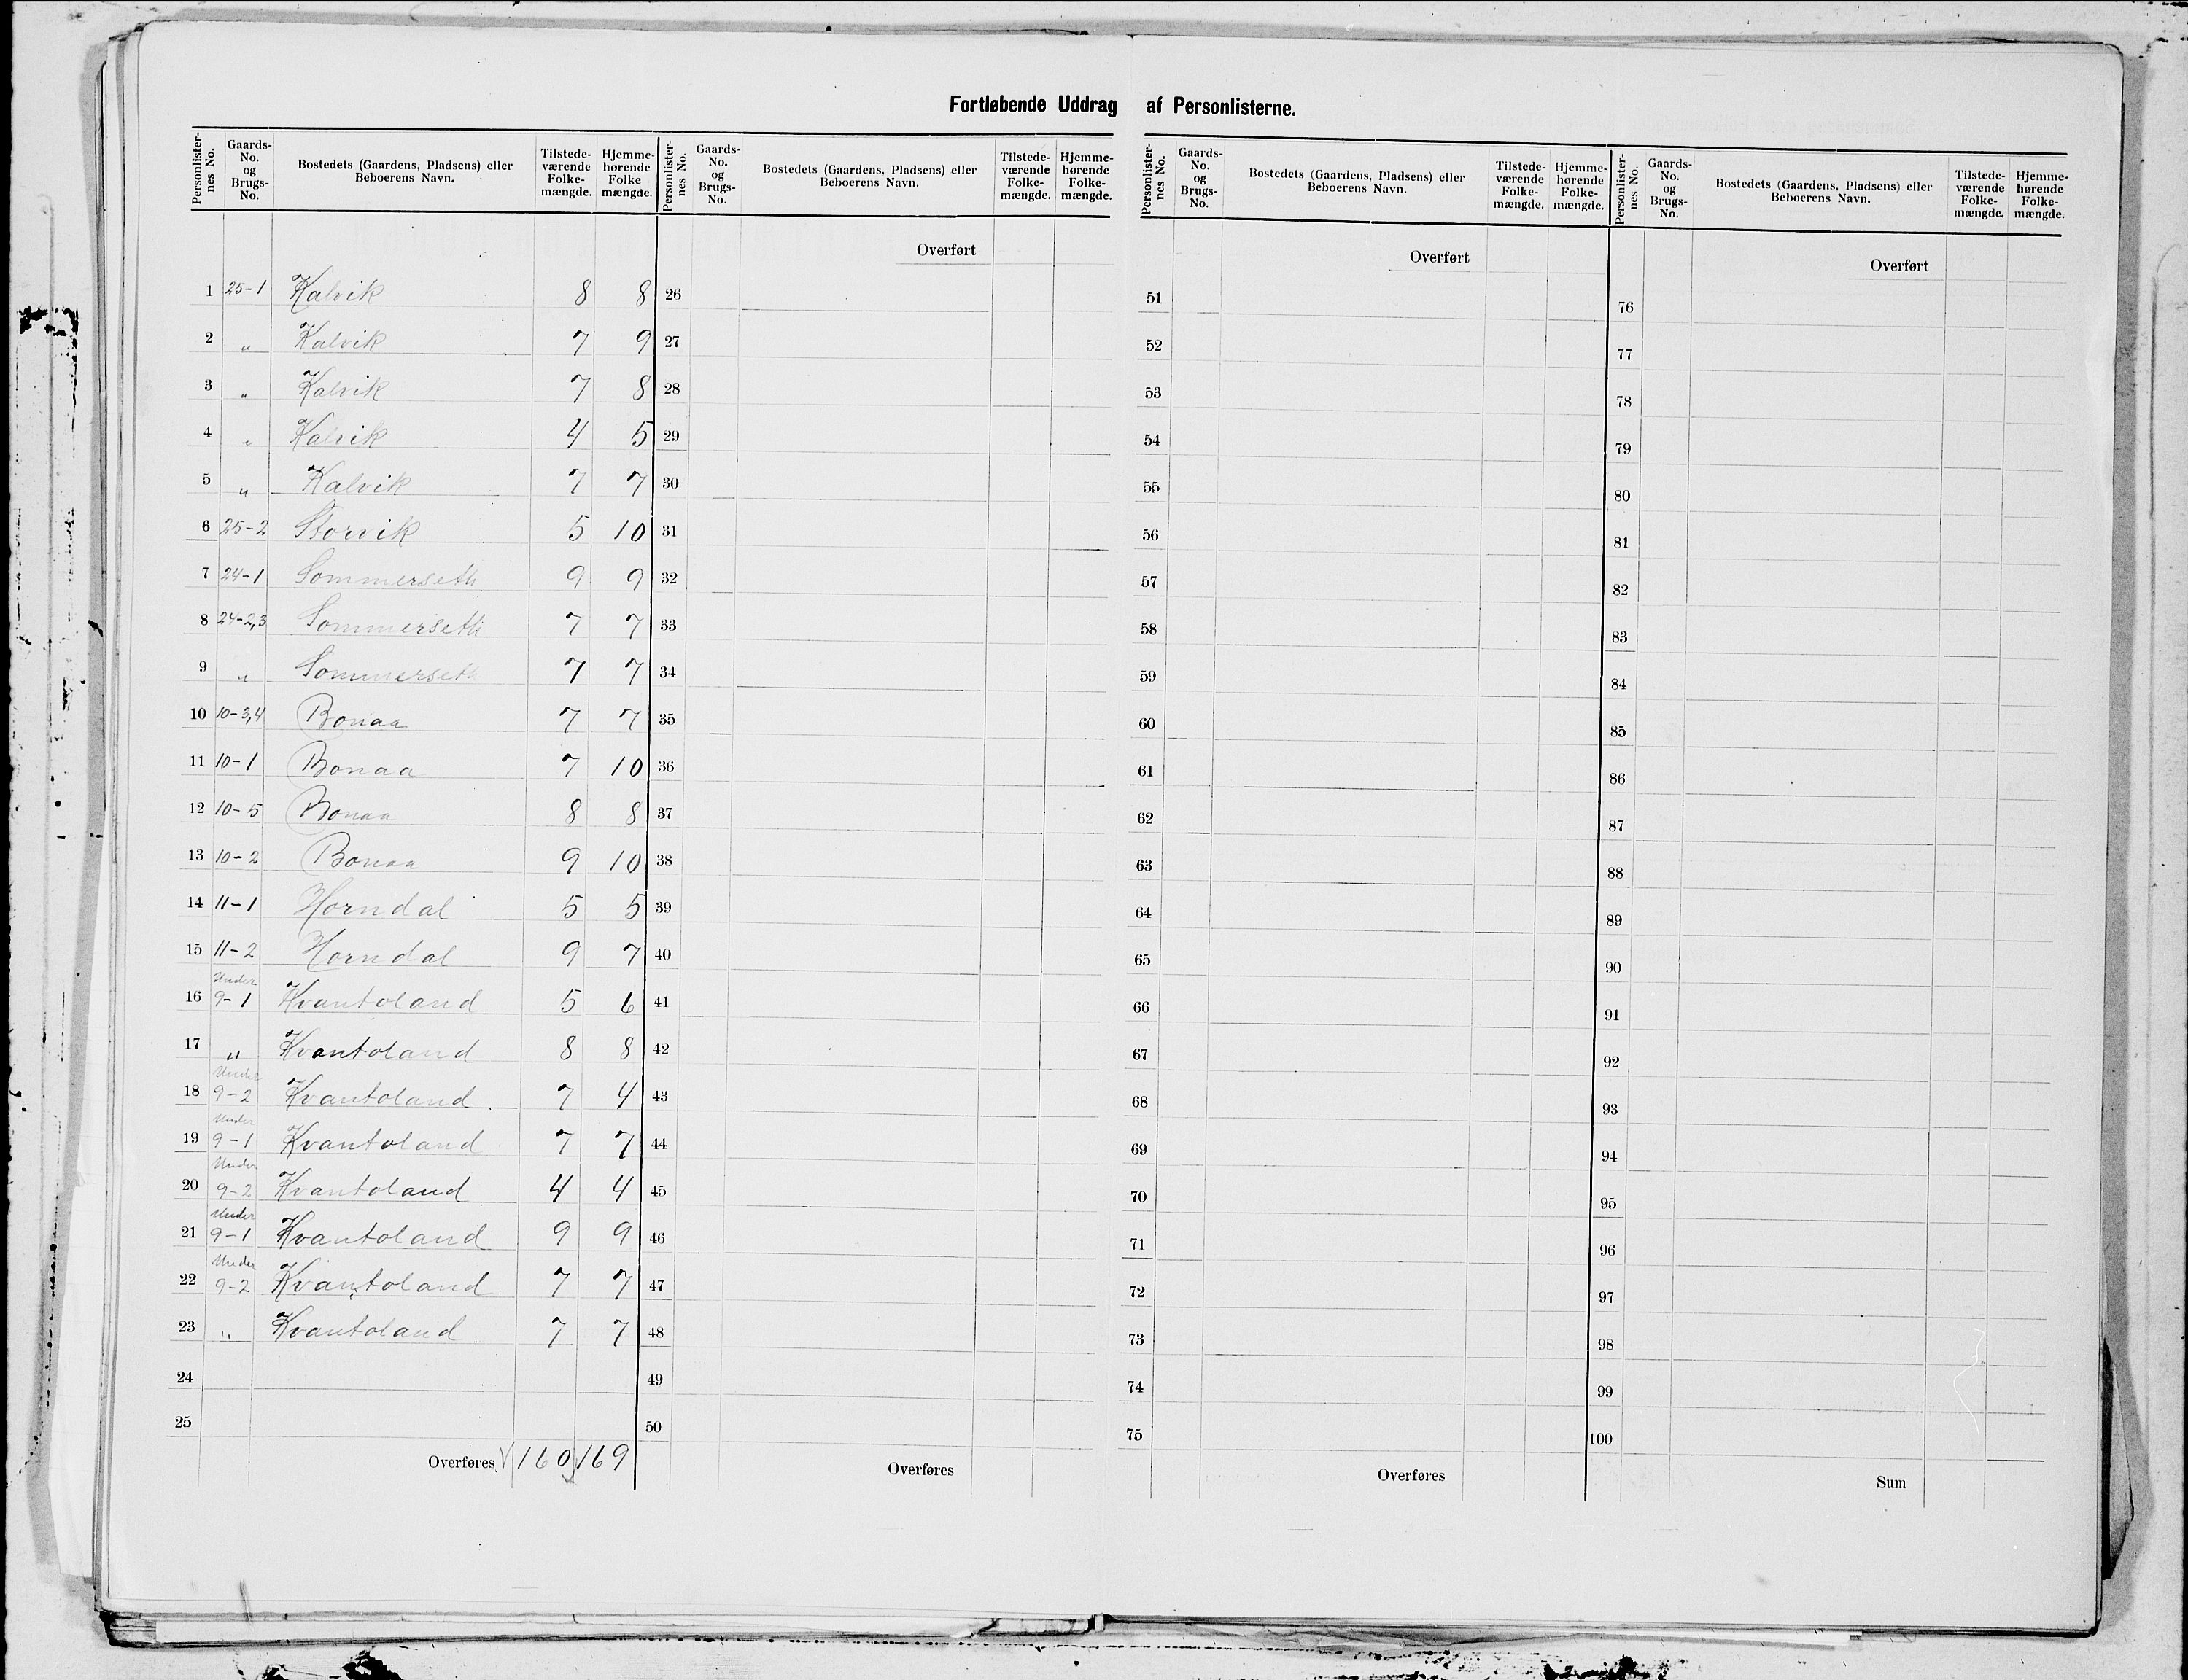 Fortløbende Uddrag af Personlisterne.
Personlister-nes No. Gaards-No. og Brugs-No. Bostedets (Gaardens, Pladsens) eller Beboerens Navn. Tilstede-værende Folke-mængde. Hjemme-hørende Folke mængde. Personlister-nes No. Gaards-No. og Brugs-No. Bostedets (Gaardens, Pladsens) eller Beboerens Navn. Tilstede-værende Folke-mængde. Hjemme-hørende Folke-mængde. Personlister-nes No. Gaards-No. og Brugs-No. Bostedets (Gaardens, Pladsens) eller Beboerens Navn. Tilstede-værende Folke-mængde. Hjemme-hørende Folke-mængde. Personlister-nes No. Gaards-No. og Brugs-No. Bostedets (Gaardens, Pladsens) eller Beboerens Navn. Tilstede-værende Folke-mængde. Hjemme-hørende Folke-mængde.
Overført Overført Overført
1 25-1 Kalvik 8 8 26 51 76
2 „ Kalvik 7 9 27 52 77
3 „ Kalvik 7 8 28 53 78
4 „ Kalvik 4 5 29 54 79
5 „ Kalvik 7 7 30 55 80
6 25-2 Storvik 5 10 31 56 81
7 24-1 Sommerseth 9 9 32 57 82
8 24-2,3 Sommerseth 7 7 33 58 83
9 „ Sommerseth 7 7 34 59 84
10 10-3,4 Bonaa 7 7 35 60 85
11 10-1 Bonaa 7 10 36 61 86
12 10-5 Bonaa 8 8 37 62 87
13 10-2 Bonaa 9 10 38 63 88
14 11-1 Horndal 5 5 39 64 89
15 11-2 Horndal 9 7 40 65 90
16 Under 9-1 Kvantoland 5 6 41 66 91
17 „ Kvantoland 8 8 42 67 92
18 Under 9-2 Kvantoland 7 4 43 68 93
19 Under 9-1 Kvantoland 7 7 44 69 94
20 Under 9-2 Kvantoland 4 4 45 70 95
21 Under 9-1 Kvantoland 9 9 46 71 96
22 Under 9-2 Kvantoland 7 7 47 72 97
23 „ Kvantoland 7 7 48 73 98
24 49 74 99
25 50 75 100
Overføres 160 169 Overføres Overføres Sum